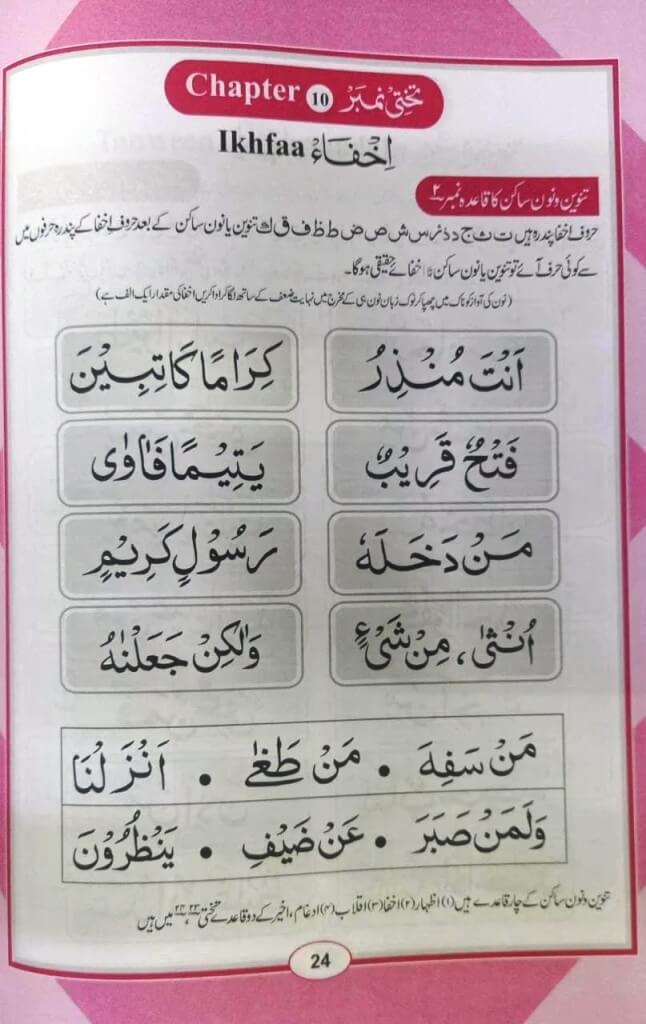 Chapter 10 تختی نمبر
Ikhfaa اِخْفَاءْ
تنوین و نون ساکن کا قاعدہ نمبر ۲
حروفِ اخفا پندرہ ہیں ت ث ج د ذ ز س ش ص ض ط ظ ف ق ک تنوین یا نون ساکن کے بعد حروفِ اخفا کے پندرہ حرفوں میں
سے کوئی حرف آئے تو تنوین یا نون ساکن کا اخفائے حقیقی ہوگا۔
(نون کی آواز کو ناک میں چھپا کر نوک زبان نون ہی کے مخرج میں نہایت ضعف کے ساتھ لگا کر ادا کریں اخفا کی مقدار ایک الف ہے)
اَنْتَ مُنْذِرُ كِرَامًا كَاتِبِيْنَ
فَتْحٌ قَرِيْبٌ يَتِيْمًا فَاٰوٰى
مَنْ دَخَلَهٗ رَسُوْلٍ كَرِيْمٍ
اُنْثٰى، مِنْ شَىْءٍ وَلٰكِنْ جَعَلْنٰهُ
مَنْ سَفِهَ • مَنْ طَغٰى • اَنْزَلْنَا
وَلَمَنْ صَبَرَ • عَنْ ضَيْفِ • يَنْظُرُوْنَ
تنوین و نون ساکن کے چار قاعدے ہیں (۱) اظہار (۲) اخفا (۳) اقلاب (۴) ادغام، اخیر کے دو قاعدے تختی ۲۳، ۲۴ میں ہیں
24